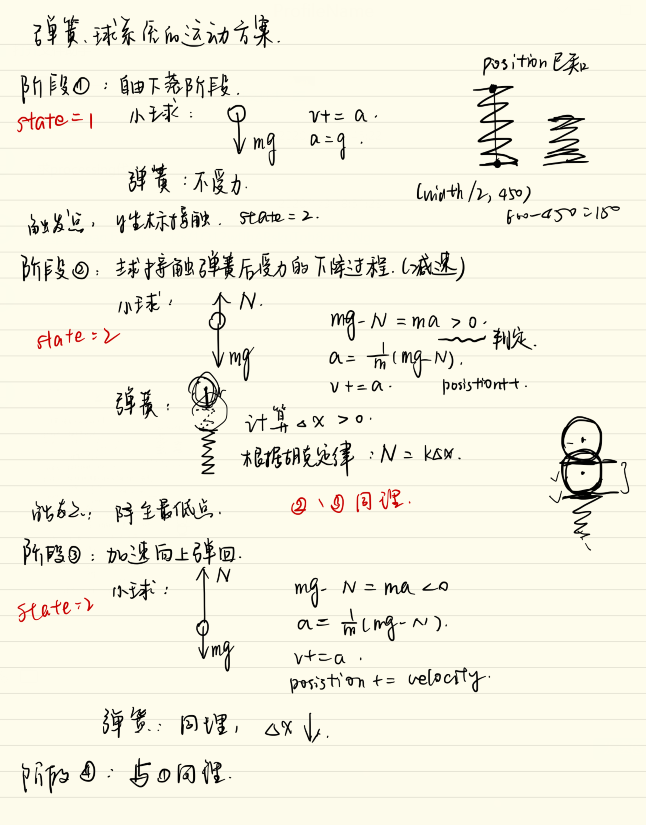 弹簧、球系统的运动方案.
position已知
阶段①：自由下落阶段.
state=1
小球：
mg
v+=a.
a=g.
弹簧：不受力.
(width/2, 450)
600-450=150
触发点，y坐标接触. state=2.
阶段②：球接触弹簧后受力的下降过程.(减速)
小球：
N.
mg
state=2
mg-N=ma>0. 判定.
a=1/m(mg-N).
v+=a. posistion++.
弹簧：
计算△x>0.
根据胡克定律：N=k△x.
触发点：降至最低点.
②、③同理.
阶段③：加速向上弹回.
state=2
小球：
N
mg
mg-N=ma<0
a=1/m(mg-N).
v+=a.
posistion += velocity.
弹簧：同理，△x↓.
阶段④：与①同理.